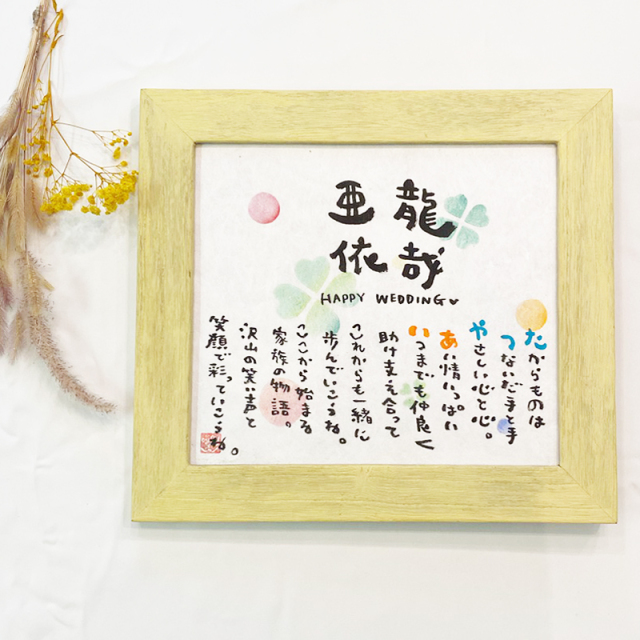 龍哉
亜依
HAPPY WEDDING
たからものは
つないだ手と手
やさしい心と心。
あい情いっぱい
いつまでも仲良く
助け支え合って
これからも一緒に
歩んでいこうね。
ここから始まる
家族の物語。
沢山の笑い声と
笑顔で彩っていこうね。